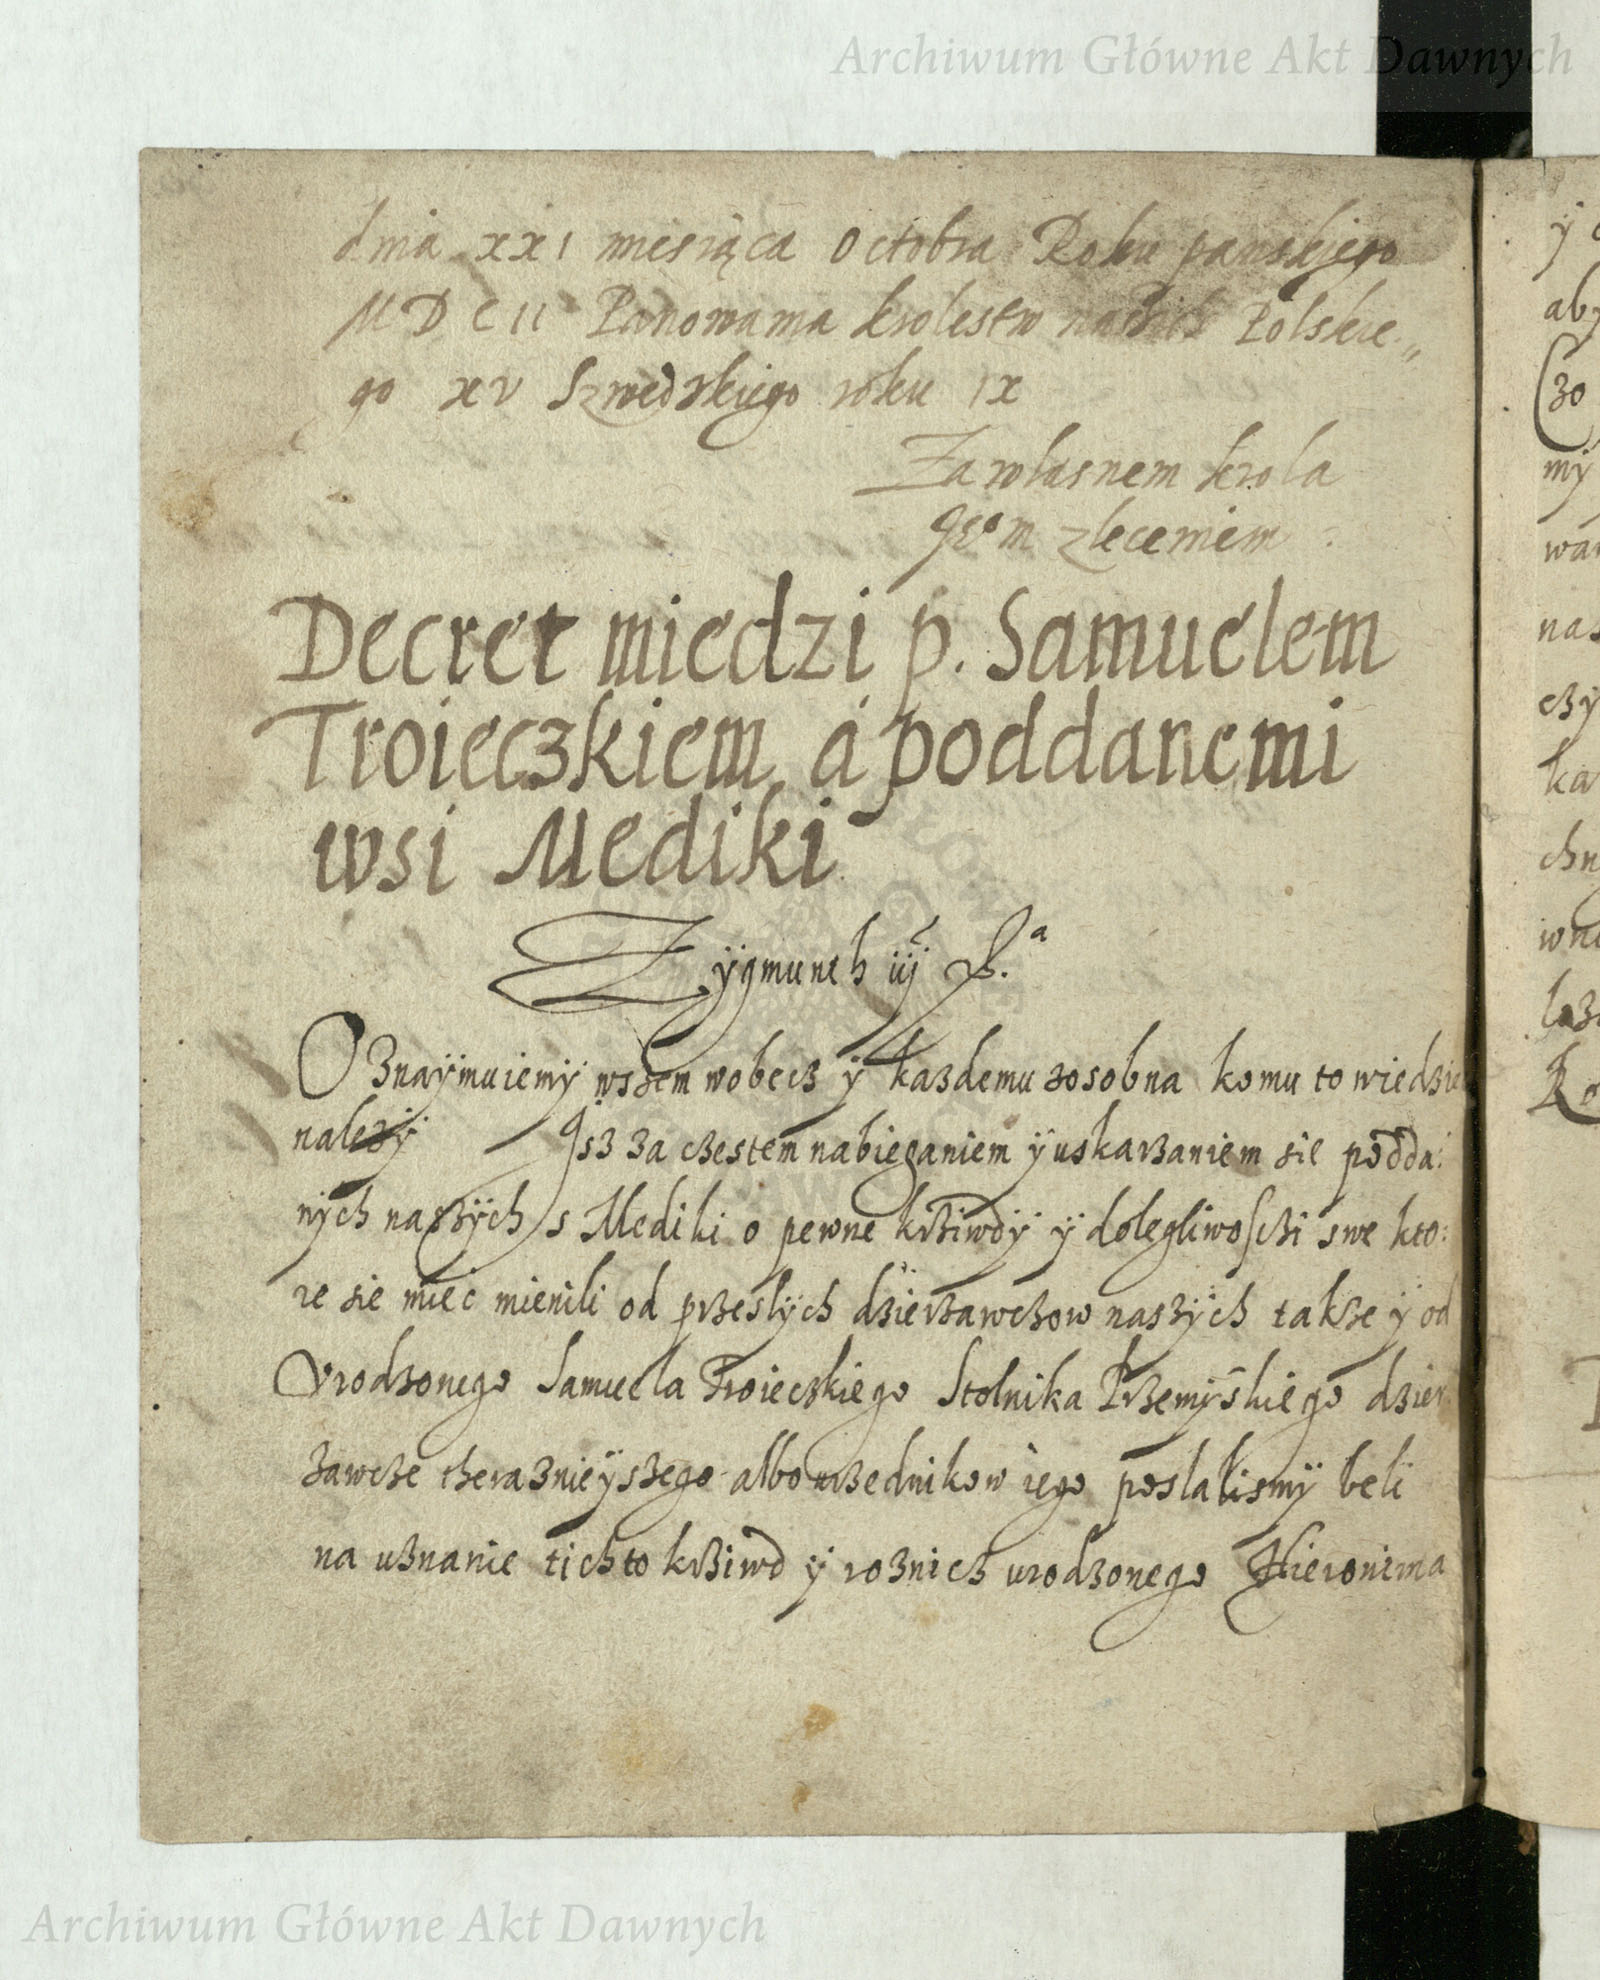 Archiwum Główne Akt Dawnych
dnia xx1 miesiąca Octobra Roku panskiego
M D C II Panowania krolestw naszich Polskie„
go xv Szwedzkiego roku IX
Zawlasnem krola
Je° m zleceniem
Decret miedzi p. Samuelem
Troieczkiem á poddanemi
wsi Mediki
Zÿgmunth iiÿ
Oznaÿmuiemÿ wszem wobecz ÿ kazdemu zosobna komu to wiedzie
nalezÿ Jsz za czestem nabieganiem ÿ uskarzaniem sie podda:
nÿch naszÿch s Mediki o pewne krziwdÿ ÿ dolegliwosczi swe kto:
re sie miec mienili od przeslÿch dzierzawczow naszÿch takze ÿ od
Vrodzonego Samuela Troieczkiego Stolnika Przemÿskiego dzier
zawcze theraznieÿszego albo urzednikow iego poslalismÿ beli
na uznanie tichto krziwd ÿ roznicz urodzonego Hieronima
ÿ
abÿ
zo
mÿ
nas
czÿ
ka
chn
Archiwum Główne Akt Dawnych